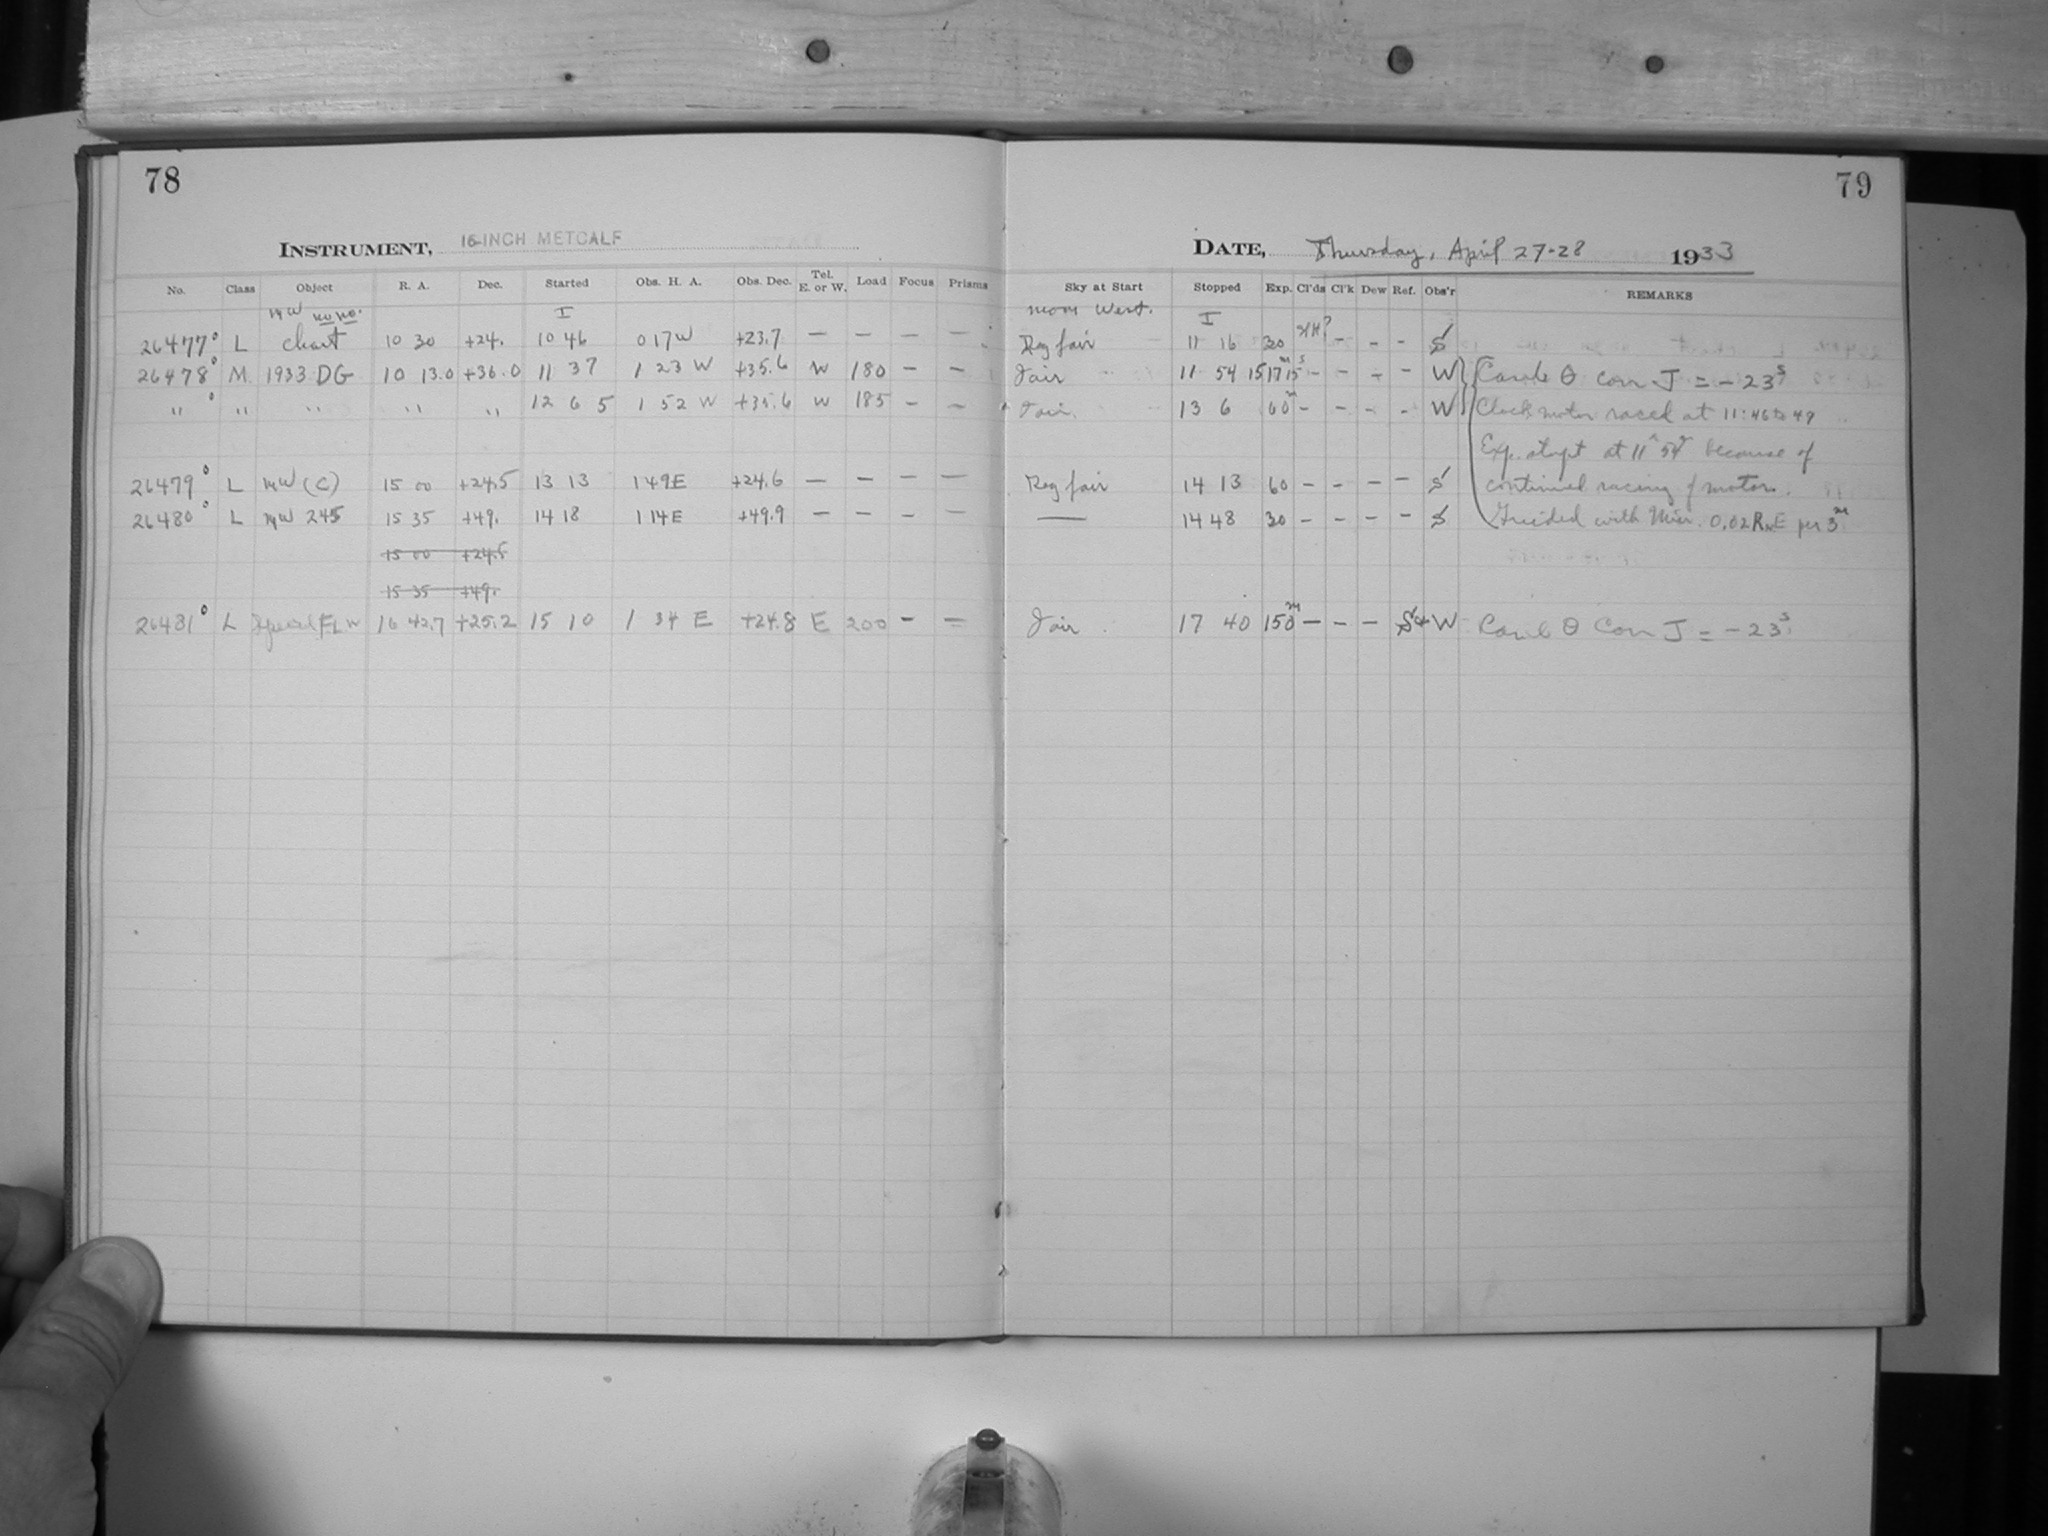 78
79
INSTRUMENT, 16-INCH METCALF
DATE, Thursday, April 27-28 1933
No. Class Object R. A. Dec. Started Obs. H. A. Obs. Dec. Tel. E. or W. Load Focus Prisms Sky at Start Stopped Exp. Cl'ds Cl'k Dew Ref. Obs'r REMARKS
MW no no. I moon West. I
26477° L chart 10 30 +24. 10 46 0 17 W +23.7 — — — — Reg fair 11 16 30 — — — S
26478° M 1933 DG 10 13.0 +36.0 11 37 1 23 W +35.6 W 180 — — Fair 11 54 15 17m 15s — — — — W
" ° " " " " 12 6 5 1 52 W +35.6 W 185 — — Fair. 13 6 60m — — — — W
corr J = -23s
Clock motor raced at 11:46 to 49
Exp. stopt at 11h 54m because of
continued racing of motor.
Guided with Micr. 0.02 R E per 3m
26479° L MW (C) 15 00 +24.5 13 13 1 49 E +24.6 — — — — Reg fair 14 13 60 — — — — S
26480° L MW 245 15 35 +49. 14 18 1 14 E +49.9 — — — — —— 14 48 30 — — — — S
15 00 +24.5
15 35 +49.
26481° L Special FLW 16 42.7 +25.2 15 10 1 34 E +24.8 E 200 — — Fair 17 40 150m — — — S+W Corr J = -23s